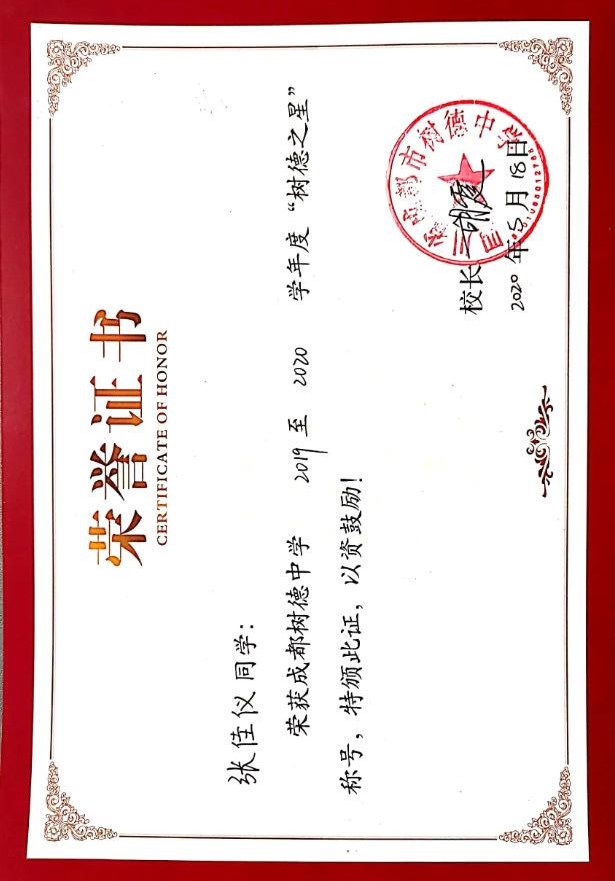 荣誉证书
CERTIFICATE OF HONOR
张佳仪同学：
荣获成都树德中学 2019 至 2020 学年度“树德之星”
称号，特颁此证，以资鼓励！
成都市树德中学
校长
2020 年 5 月 18 日